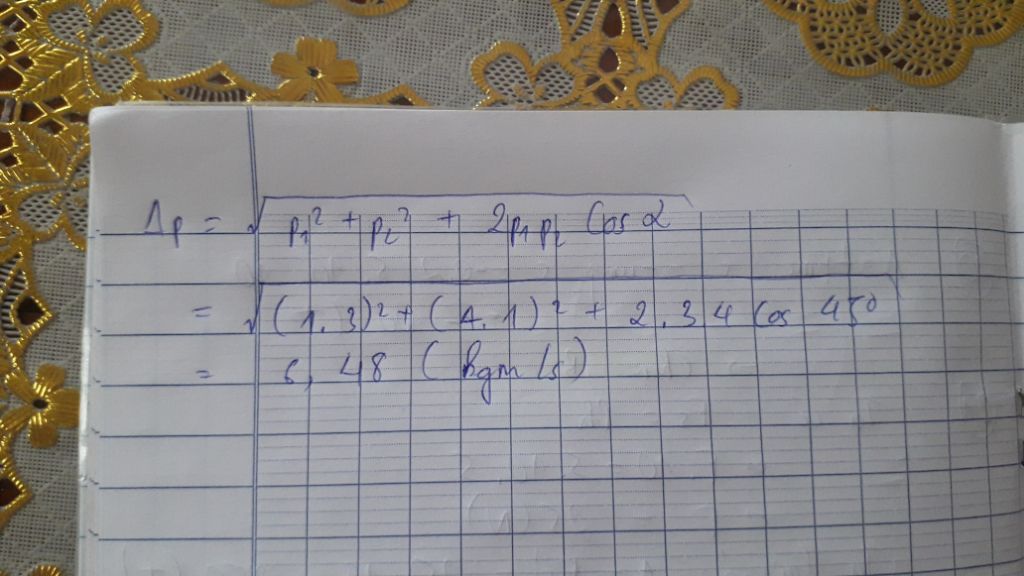 Δp = √(p₁² + p₂² + 2p₁p₂ Cos α)
= √((1.3)² + (4.1)² + 2.3 4 Cos 45⁰)
= 6,48 (kgm/s)